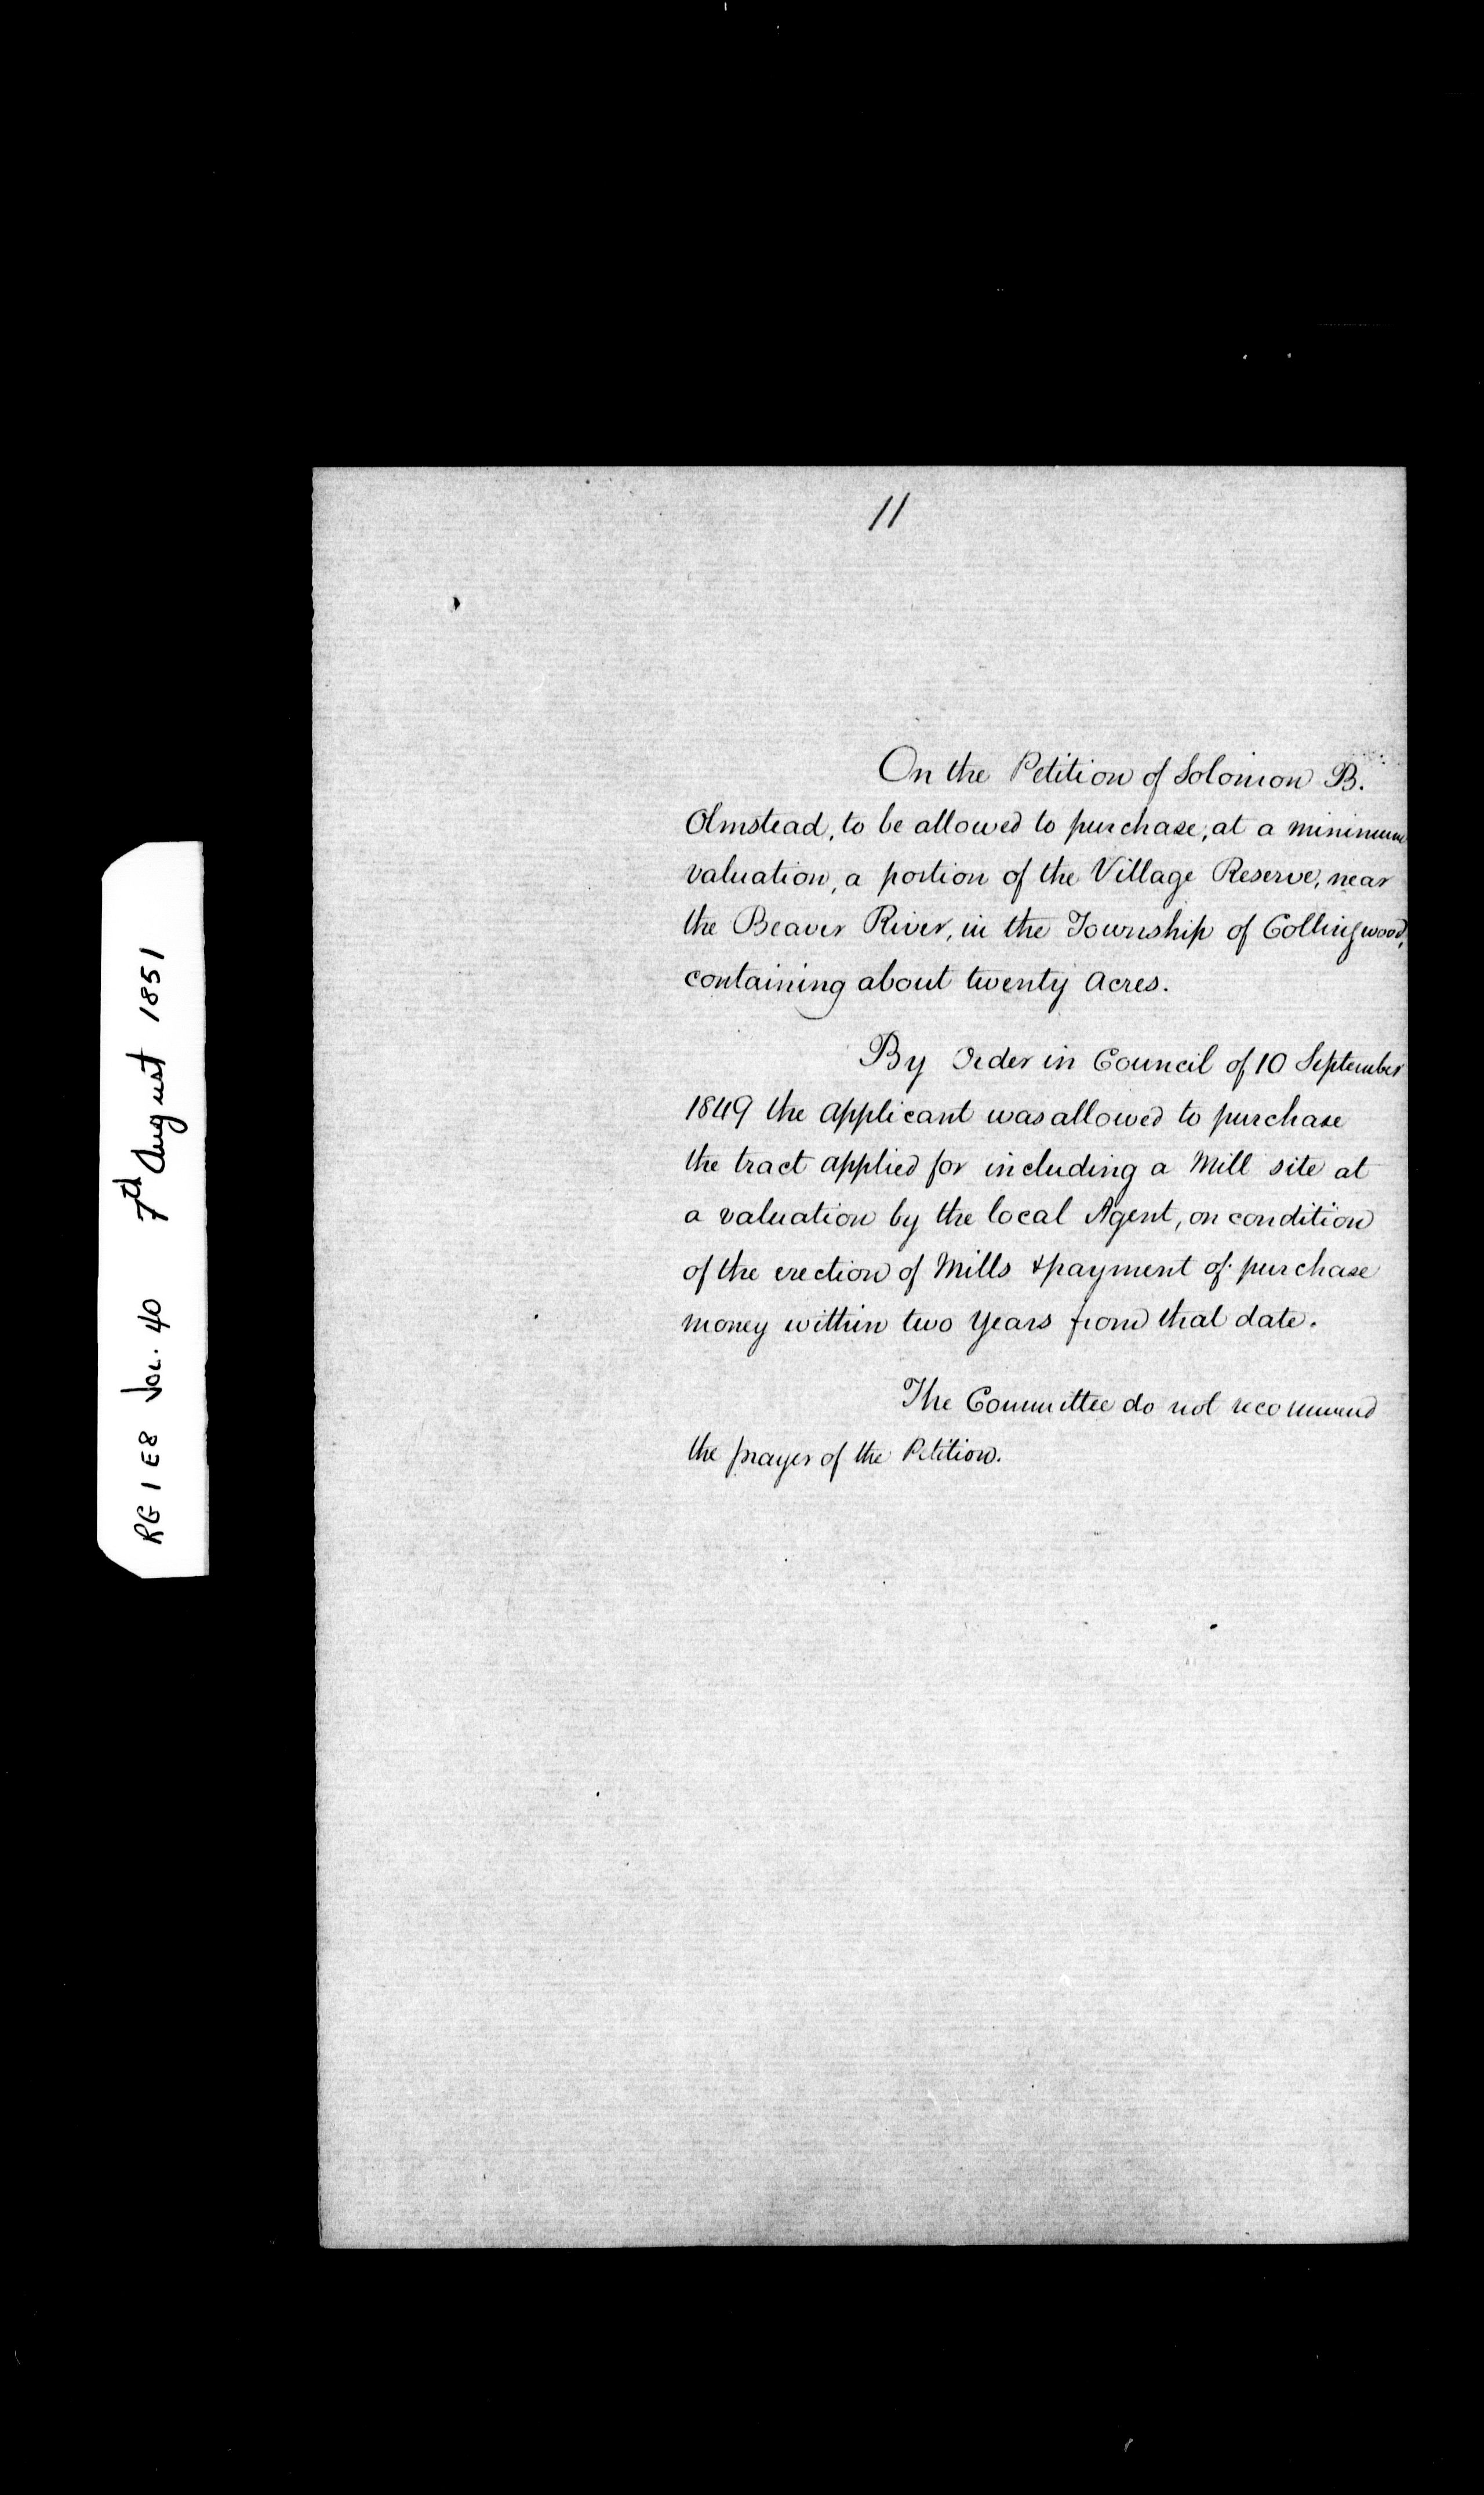 RG 1 E8 Vol. 40 7th August 1851
11
On the Petition of Solomon B.
Olmstead, to be allowed to purchase, at a minimum
valuation, a portion of the Village Reserve, near
the Beaver River, in the Township of Collingwood,
containing about twenty Acres.
By Order in Council of 10 September
1849 the applicant was allowed to purchase
the tract applied for including a Mill site at
a valuation by the local Agent, on condition
of the erection of Mills & payment of purchase
money within two Years from that date.
The Committee do not recommend
the prayer of the Petition.